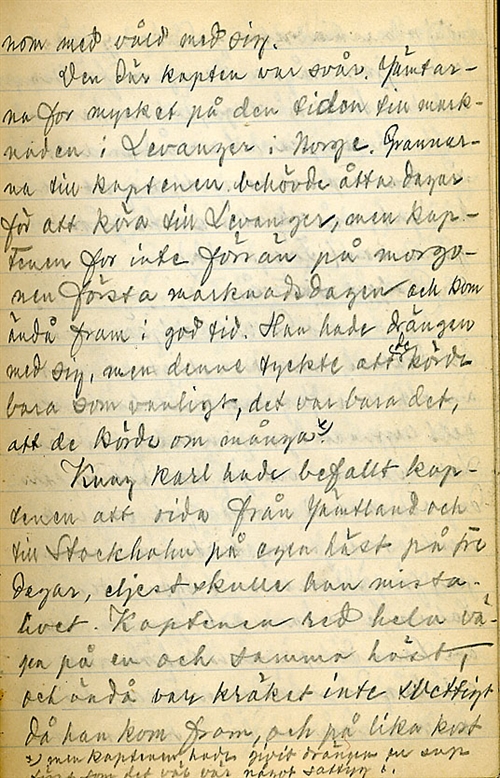 nom med våld med sig.
Den där kapten var svår. Jämtar-
na for mycket på den tiden till mark-
naden i Levanger i Norge. Grannar-
na till kaptenen behövde åtta dagar
för att köra till Levanger, men kap-
tenen for inte förrän på morgo-
nen första marknadsdagen och kom
ändå fram i god tid. Han hade drängen
med sig, men denne tyckte att de körde
bara som vanligt, det var bara det,
att de körde om många x)
Kung Karl hade befallt kap-
tenen att rida från Jämtland och
till Stockholm på egen häst på tre
dagar, eljest skulle han mista
livet. Kaptenen red hela vä-
gen på en och samma häst,
och ändå var kräket inte svettigt
då han kom fram, och på lika kort
x) men kaptenen hade givit drängen en sup
som det var något